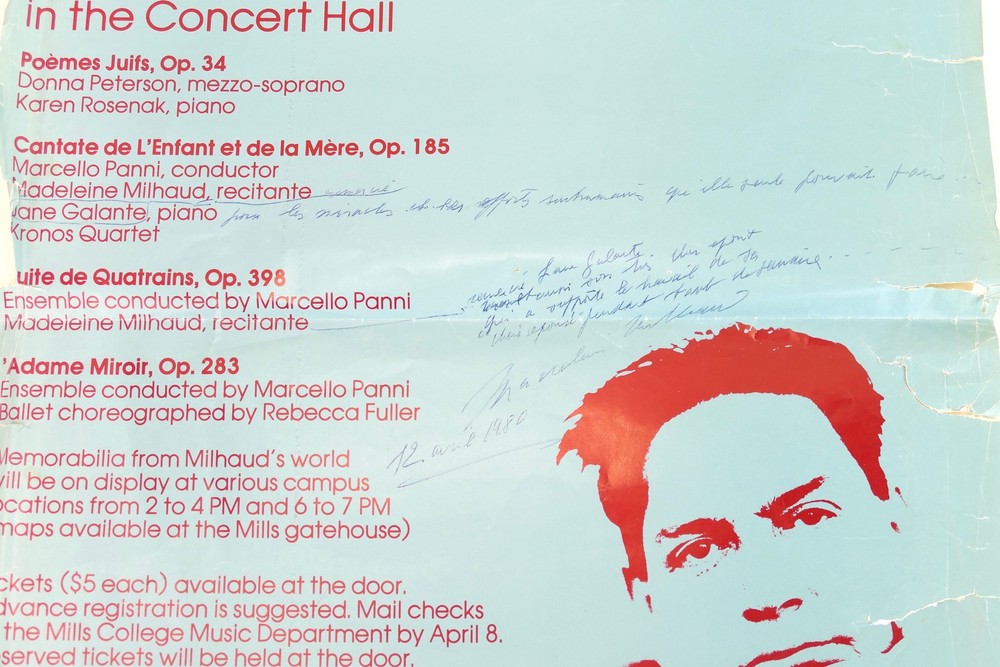 in the Concert Hall
Poèmes Juifs, Op. 34
Donna Peterson, mezzo-soprano
Karen Rosenak, piano
Cantate de L'Enfant et de la Mère, Op. 185
Marcello Panni, conductor
Madeleine Milhaud, recitante remercie
Jane Galante, piano pour les miracles et les efforts surhumains qu'elle seule pouvait faire...
Kronos Quartet
uite de Quatrains, Op. 398
Ensemble conducted by Marcello Panni
Madeleine Milhaud, recitante
Jane Galante
son très cher époux
qui a supporté le travail de sa
chère épouse pendant tant de semaines...
'Adame Miroir, Op. 283
Ensemble conducted by Marcello Panni
Ballet choreographed by Rebecca Fuller
Madeleine Milhaud
12 avril 1980
Memorabilia from Milhaud's world
will be on display at various campus
ocations from 2 to 4 PM and 6 to 7 PM
maps available at the Mills gatehouse)
ckets ($5 each) available at the door.
dvance registration is suggested. Mail checks
the Mills College Music Department by April 8.
eserved tickets will be held at the door.